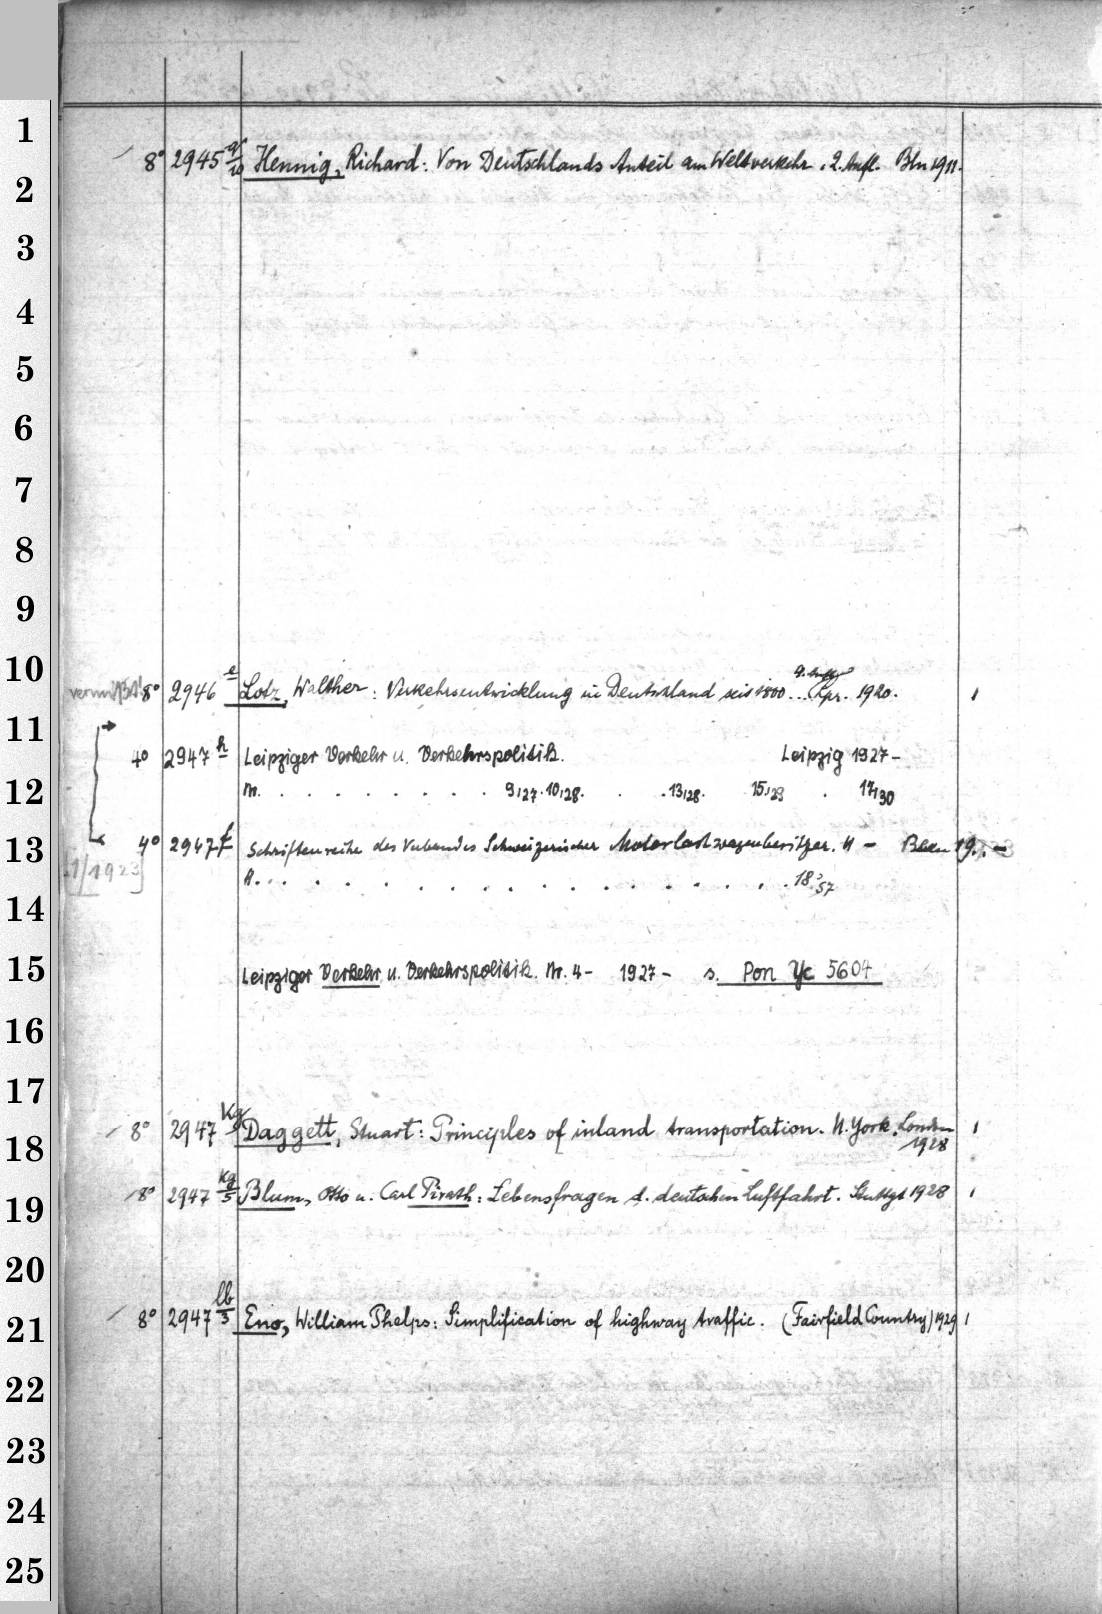 1
8° 2945 q/10 Hennig, Richard: Von Deutschlands Anteil am Weltverkehr. 2. Aufl. Bln 1911.
2
3
4
5
6
7
8
9
10
4. Aufl.
vermißt! 8° 2946 e Lotz, Walther: Verkehrsentwicklung in Deutschland seit 1800... Lpz. 1920. 1
11
4° 2947 h Leipziger Verkehr u. Verkehrspolitik. Leipzig 1927-
12 Nr. . . . . . . . . . 9,27. 10,28. . . 13,28. 15,29 . 17,30
13 4° 2947 f Schriftenreihe des Verbandes Schweizerischer Motorlastwagenbesitzer. H - Bern 19..-
1/1923 H. . . . . . . . . . . . . . . 18,57
14
15 Leipziger Verkehr u. Verkehrspolitik. Nr. 4- 1927- s. Pon Yc 5604
16
17
8° 2947 Kg Daggett, Stuart: Principles of inland transportation. N. York, London 1
18 1928
8° 2947 Kg/5 Blum, Otto u. Carl Pirath: Lebensfragen d. deutschen Luftfahrt. Stuttgt 1928 1
19
20
8° 2947 lb/5 Eno, William Phelps: Simplification of highway traffic. (Fairfield Country) 1929 1
21
22
23
24
25